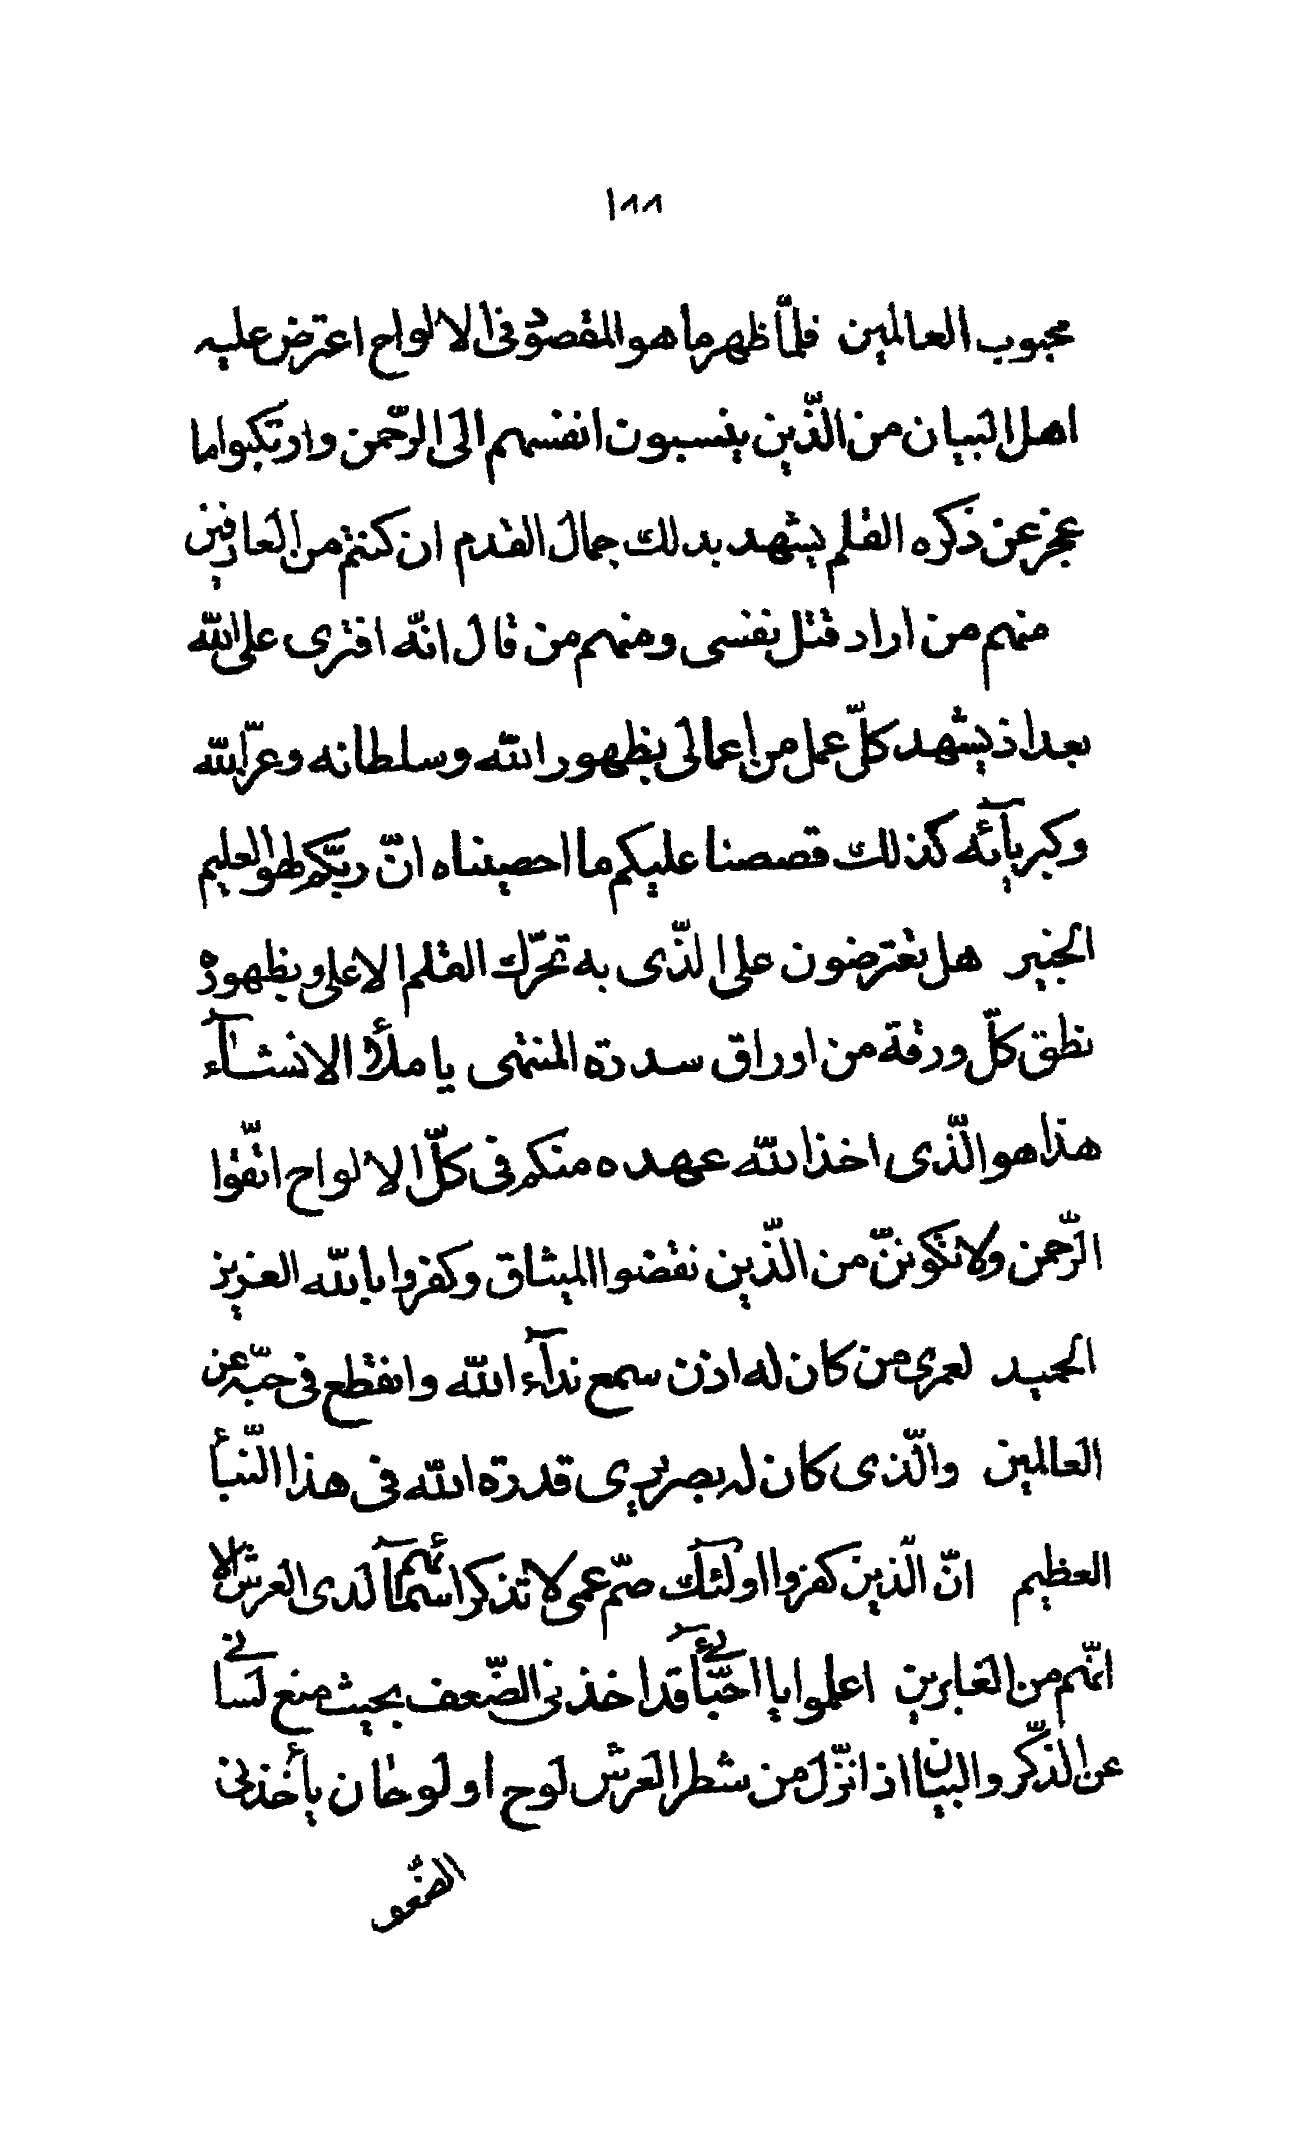 ١٨٨
محبوب العالمين فلمّا ظهر ما هو المقصود فى الالواح اعترض عليه
اهل البيان من الّذين ينسبون انفسهم الى الرّحمن وارتكبوا ما
عجز عن ذكره القلم يشهد بذلك جمال القدم ان كنتم من العارفين
منهم من اراد قتل نفسى ومنهم من قال انّه افترى على الله
بعد اذ يشهد كلّ عمل من اعمالى بظهور الله وسلطانه وعزّ الله
وكبريآئه كذلك قصصنا عليكم ما احصيناه انّ ربّكم لهو العليم
الخبير هل تعترضون على الّذى به تحرّك القلم الاعلى وبظهوره
نطق كلّ ورقة من اوراق سدرة المنتهى يا ملأ الانشآء
هذا هو الّذى اخذ الله عهده منكم فى كلّ الالواح اتّقوا
الرّحمن ولا تكوننّ من الّذين نقضوا الميثاق وكفروا بالله العزيز
الحميد لعمرى من كان له اذن سمع ندآء الله وانقطع فى حبّه عن
العالمين والّذى كان له بصر يرى قدرة الله فى هذا النّبأ
العظيم انّ الّذين كفروا اولئك صمّ عمى لا تذكر اسمآئهم لدى العرش الا
انّهم من الغابرين اعلموا يا احبّآئى قد اخذنى الضّعف بحيث منع لسانى
عن الذّكر والبيان اذا نزّل من شطر العرش لوح او لوحان يأخذنى
الضّعف